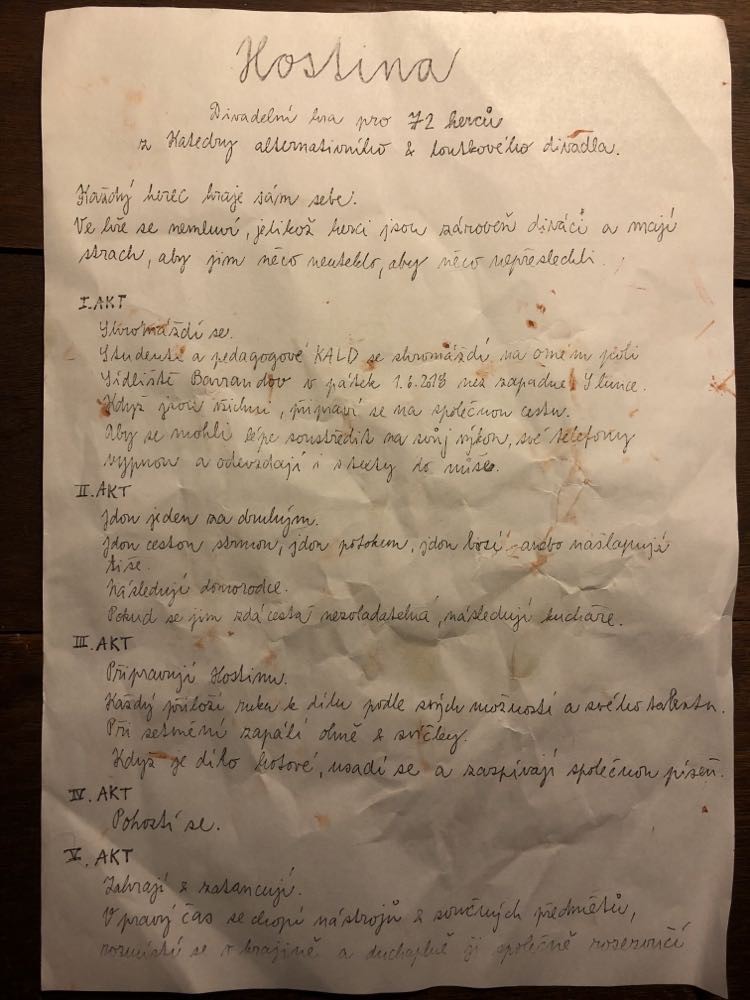 Hostina
Divadelní hra pro 72 herců
z Katedry alternativního & loutkového divadla.
Každý herec hraje sám sebe.
Ve hře se nemluví, jelikož herci jsou zároveň diváci a mají
strach, aby jim něco neuteklo, aby něco nepřeslechli.
I. AKT
Shromáždí se.
Studenti a pedagogové KALD se shromáždí na
Sídliště Barrandov v pátek 1.6.2018 než zapadne Slunce.
Když jsou všichni, připraví se na společnou cestu.
Aby se mohli lépe soustředit na svůj výkon, své telefony
vypnou a odevzdají i s texty do nůše.
II. AKT
Jdou jeden za druhým.
Jdou cestou strmou, jdou potokem, jdou bosí anebo našlapují
tiše.
Následují domorodce.
Pokud se jim zdá cesta nezvladatelná, následují kuchaře.
III. AKT
Připravují Hostinu.
Každý přiloží ruku k dílu podle svých možností a svého talentu.
Při setmění zapálí ohně & svíčky.
Když je dílo hotové, usadí se a zazpívají společnou píseň.
IV. AKT
Pohostí se.
V. AKT
Zahrají & zatancují.
V pravý čas se chopí nástrojů & zvučných předmětů,
rozmístí se v krajině a duchaplně ji společně rozezvučí